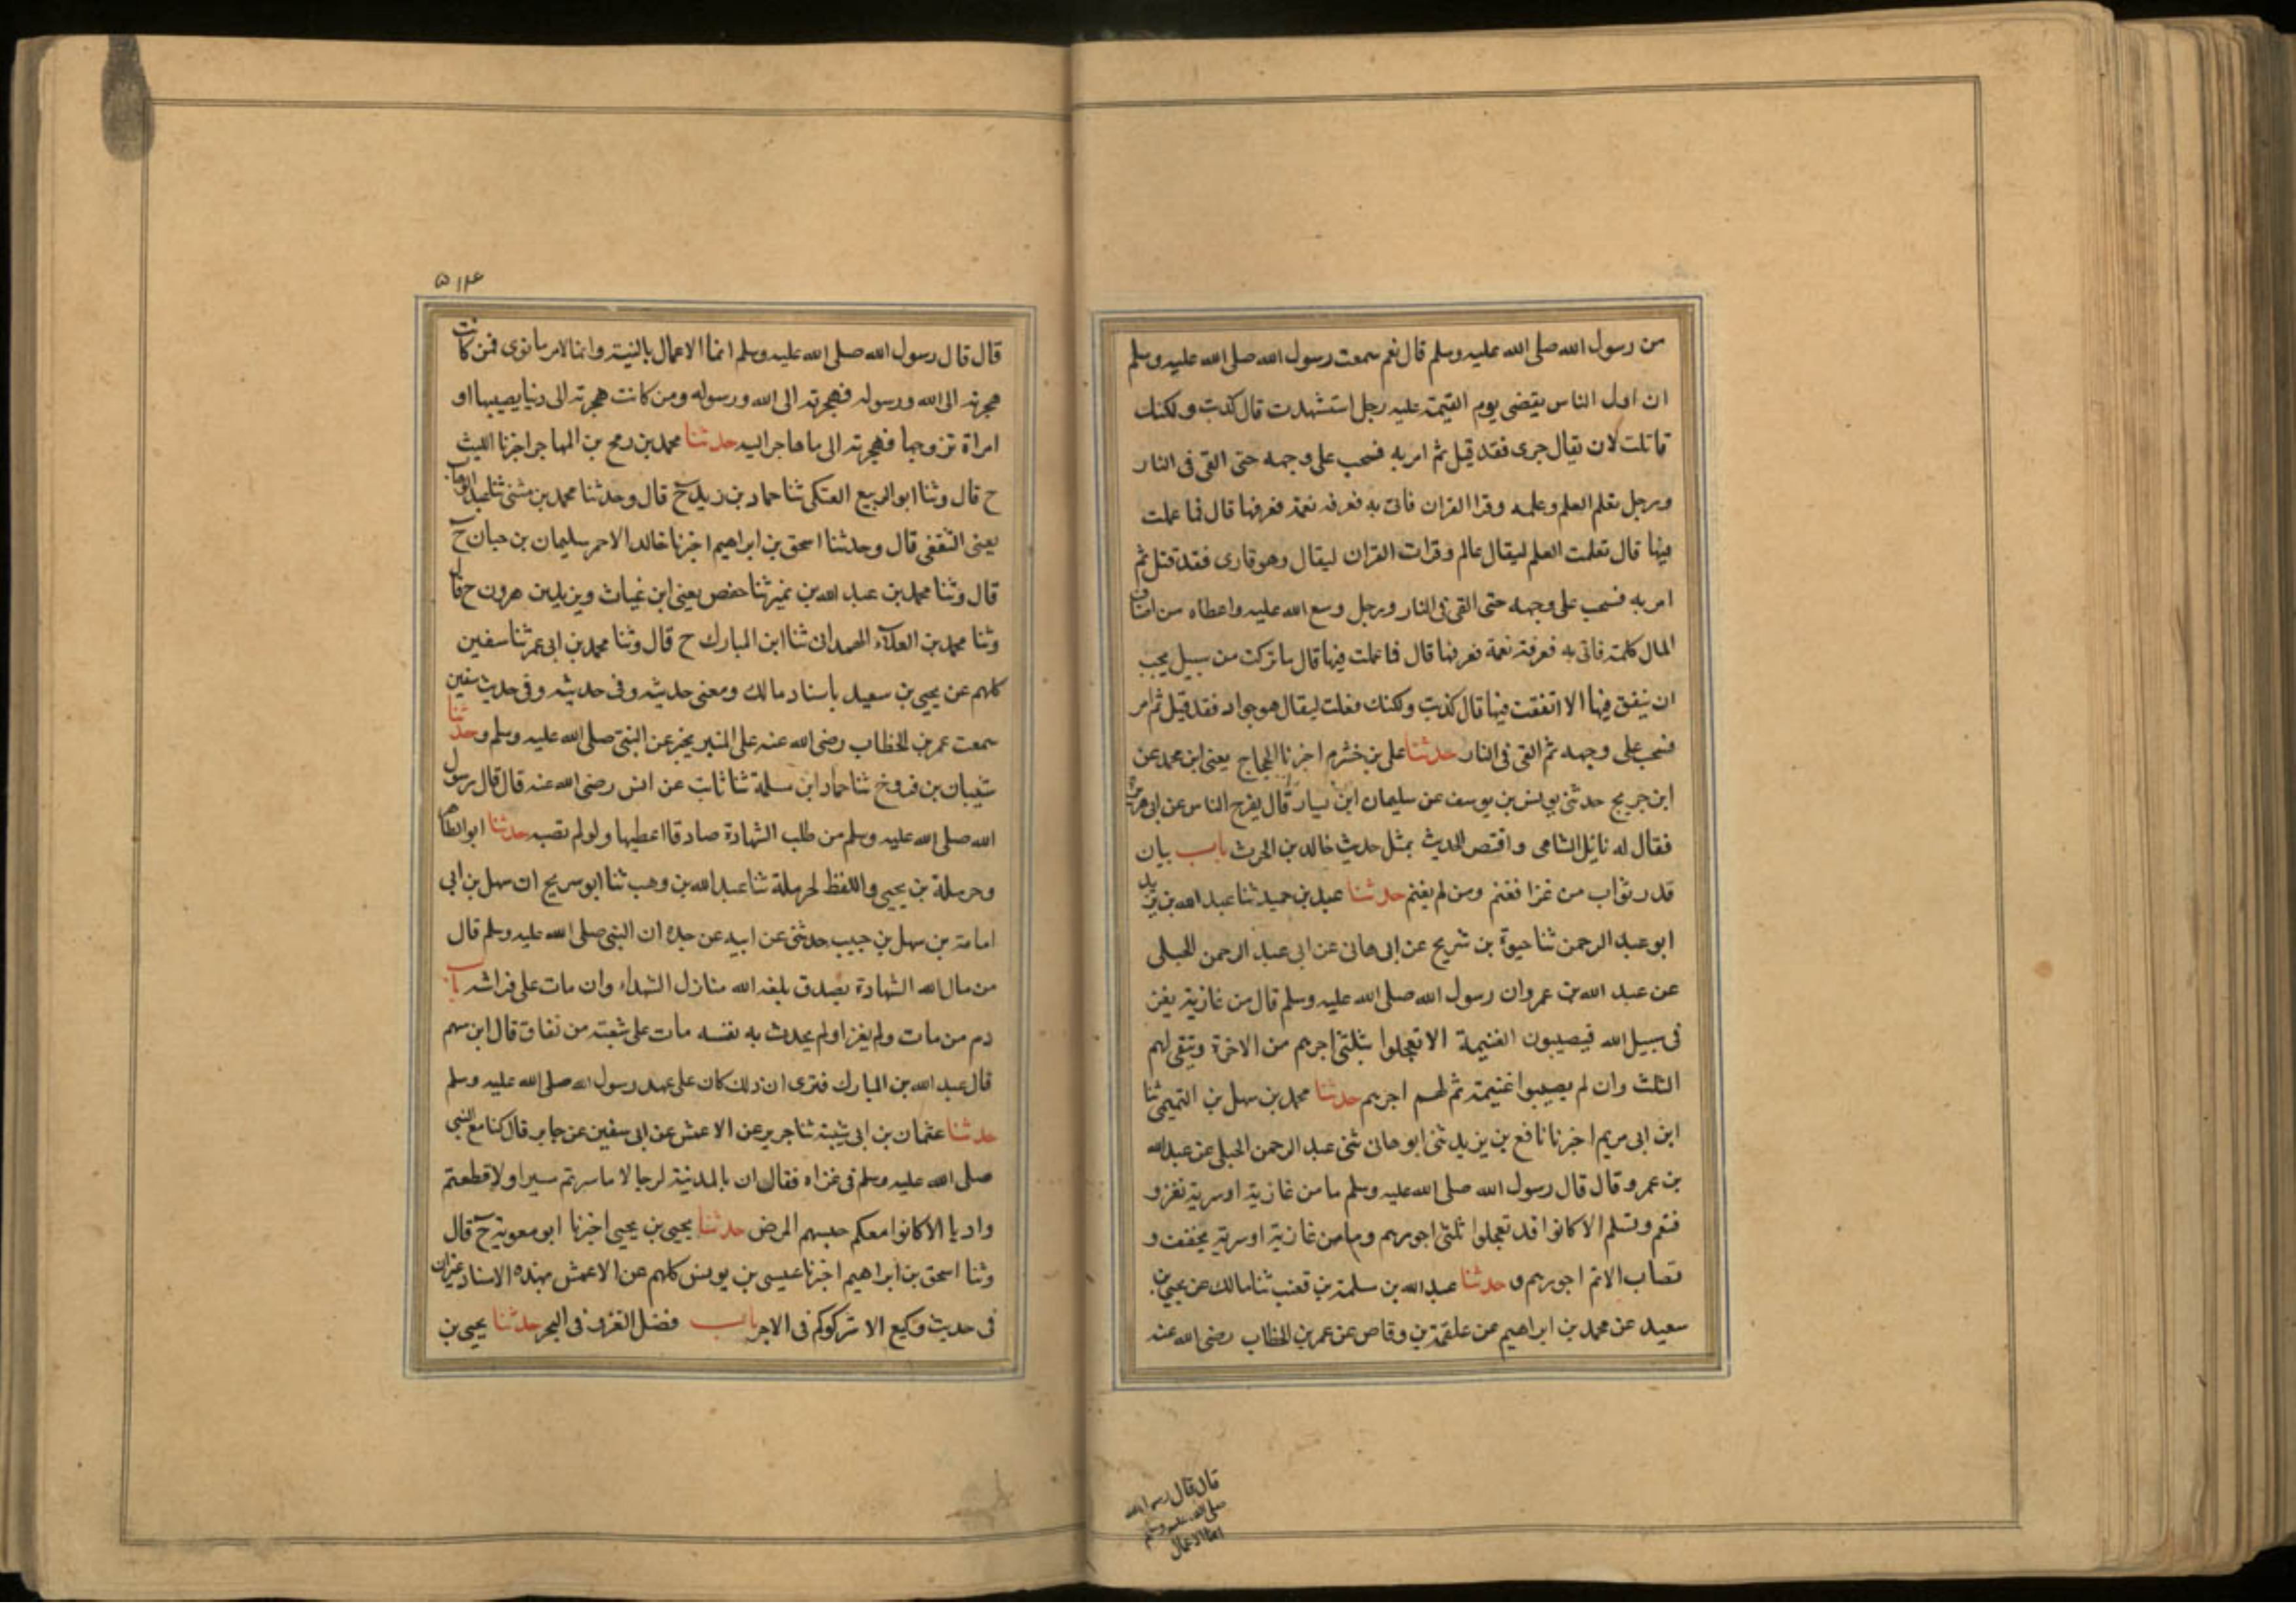 من رسول الله صلى الله عليه وسلم قال نعم سمعت رسول الله صلى الله عليه وسلم
ان اول الناس يقضى يوم القيمة عليه رجل استشهدت قال كذبت ولكنك
قاتلت لان يقال جرى فقد قيل ثم امر به فسحب على وجهه حتى القى فى النار
ورجل تعلم العلم وعلمه وقرا القران فاتى به فعرفه نعمة فعرفها قال فما عملت
فيها قال تعلمت العلم ليقال عالم وقرات القران ليقال وهو قارى فقد قتل ثم
امر به فسحب على وجهه حتى القى فى النار ورجل وسع الله عليه واعطاه من اصناف
المال كلمة فاتى به فعرفة نعمة فعرفها قال فما عملت فيها قال ما تركت من سبيل يجب
ان ينفق فيها الا انفقت فيها قال كذبت ولكنك فعلت ليقال هو جواد فقد قيل ثم امر
فسحب على وجهه ثم القى فى النار حدثنا على بن خشرم اخبرنا الحجاج يعنى ابن محمد عن
ابن جريج حدثنى يونس بن يوسف عن سليمان ابن يسار قال يفرج الناس عن ابى هريرة
فقال له ناتل الشامى واقتص الحديث بمثل حديث خالد بن الحرث باب بيان
قدر ثواب من غزا فغنم ومن لم يغنم حدثنا عبد بن حميد ثنا عبد الله بن يزيد
ابو عبد الرحمن ثنا حيوة بن شريح عن ابى هانى عن ابى عبد الرحمن الحبلى
عن عبد الله بن عمرو ان رسول الله صلى الله عليه وسلم قال من غازية يغز
فى سبيل الله فيصيبون الغنيمة الا تعجلوا بثلثى اجرهم من الاخرة ويبقى لهم
الثلث وان لم يصيبوا غنيمة ثم لهم اجرهم حدثنا محمد بن سهل بن التميمى ثنا
ابن ابى مريم اخبرنا نافع بن يزيد ثنى ابو هانى ثنى عبد الرحمن الحبلى عن عبد الله
بن عمرو قال قال رسول الله صلى الله عليه وسلم ما من غازية او سرية تغزو
فتغم وتسلم الا كانوا قد تعجلوا ثلثى اجورهم وما من غازية او سرية تخفف و
تصاب الا تم اجورهم و حدثنا عبد الله بن سلمة بن قعنب ثنا مالك عن يحيى بن
سعيد عن محمد بن ابراهيم عن علقمة بن وقاص عن عمر بن الخطاب رضى الله عنه
قال قال رسول الله
صلى الله عليه وسلم
انما الاعمال
۵۱۴
قال قال رسول الله صلى الله عليه وسلم انما الاعمال بالنية وانما لامر ما نوى فمن كانت
هجرته الى الله ورسوله فهجرته الى الله ورسوله ومن كانت هجرته الى دنيا يصيبها او
امراة تزوجها فهجرته الى ما هاجر اليه حدثنا محمد بن رمح بن المهاجر اخبرنا الليث
ح قال وثنا ابو الربيع العتكى ثنا حماد بن زيد ح قال وحدثنا محمد بن مثنى ثنا عبد الوهاب
يعنى الثقفى قال وحدثنا اسحق بن ابراهيم اخبرنا خالد الاحمر سليمان بن حبان ح
قال وثنا محمد بن عبد الله بن نمير ثنا حفص يعنى ابن غياث ويزيد بن هرون ح قال
وثنا محمد بن العلاء الهمدانى ثنا ابن المبارك ح قال وثنا محمد بن ابى عمر ثنا سفين
كلهم عن يحيى بن سعيد باسناد مالك ومعنى حديثه وفى حديثه وفى حديث سفين
سمعت عمر بن الخطاب رضى الله عنه على المنبر يخبر عن النبى صلى الله عليه وسلم وحدثنا
شيبان بن فروخ ثنا حماد ابن سلمة ثنا ثابت عن انس رضى الله عنه قال قال رسول
الله صلى الله عليه وسلم من طلب الشهادة صادقا اعطيها ولو لم تصبه حدثنا ابو الطاهر
وحرملة بن يحيى واللفظ لحرملة ثنا عبد الله بن وهب ثنا ابو سريح ان سهل بن ابى
امامة بن سهل بن حبيب حدثنى عن ابيه عن جده ان النبى صلى الله عليه وسلم قال
من سال الله الشهادة بصدق بلغه الله منازل الشهداء وان مات على فراشه باب
ذم من مات ولم يغز او لم يحدث به نفسه مات على شعبة من نفاق قال ابن سهم
قال عبد الله بن المبارك فنرى ان ذلك كان على عهد رسول الله صلى الله عليه وسلم
حدثنا عثمان بن ابى شيبة ثنا جرير عن الاعمش عن ابى سفين عن جابر قال كنا مع النبى
صلى الله عليه وسلم فى غزاه فقال ان بالمدينة لرجالا ما سرتم سيرا ولا قطعتم
واديا الا كانوا معكم حبسهم المرض حدثنا يحيى بن يحيى اخبرنا ابو معوية ح قال
وثنا اسحق بن ابراهيم اخبرنا عيسى بن يونس كلهم عن الاعمش بهذه الاسناد غير ان
فى حديث وكيع الا شركوكم فى الاجر باب فضل الغزو فى البحر حدثنا يحيى بن